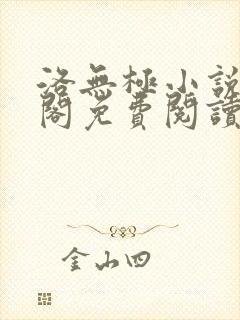 洛無極小說
閣免費閱讀
金山四